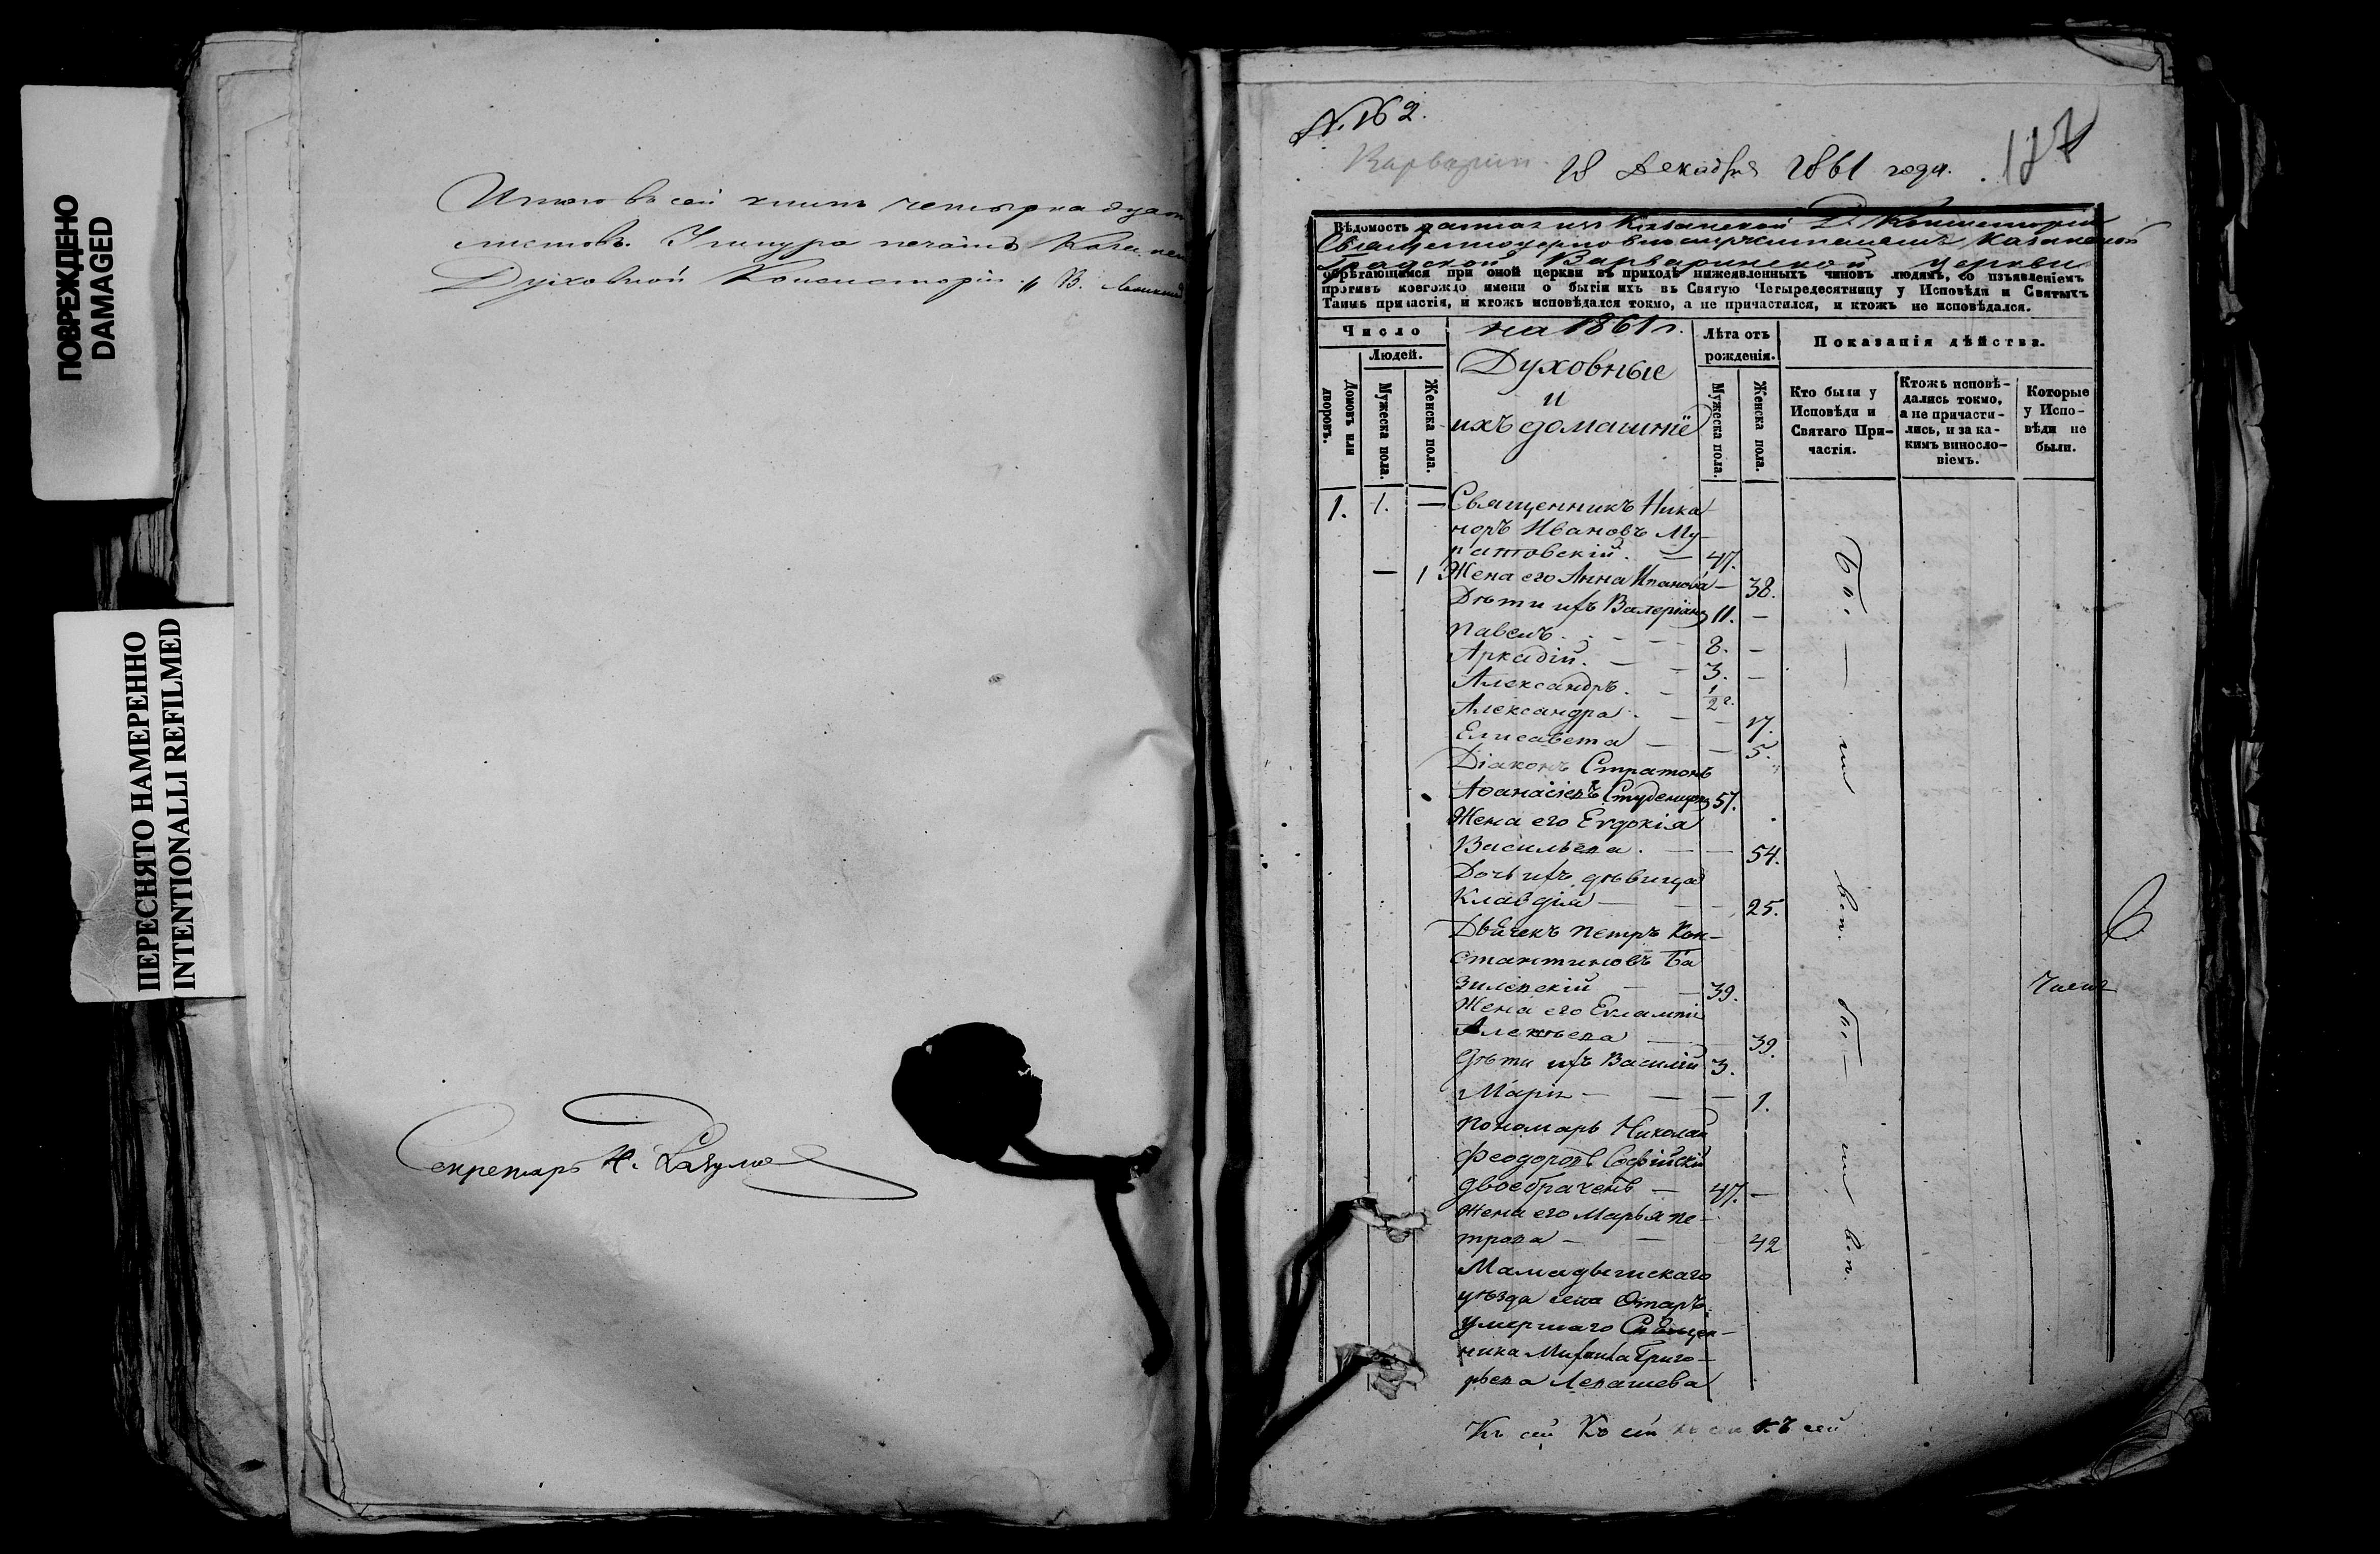 ПОВРЕЖДЕНО
DAMAGED
ПЕРЕСНЯТО НАМЕРЕННО
INTENTIONALLI REFILMED
Итого въ сей книгѣ четырнадцать
листовъ. У шнура печать Казанской
Духовной Консисторіи.
Секретарь Н. Разумовъ
№. 162.
Варварин.
18 Декабря 1861 года.
127
Вѣдомость данная изъ Казанской Д. Консисторіи
Священноцерковнослужителямъ Казанской
Градской Варваринской церкви
обрѣтающимся при оной церкви въ приходѣ нижеявленныхъ чиновъ людямъ, со изъявленіемъ
противъ коегождо имени о бытіи ихъ въ Святую Четыредесятницу у Исповѣди и Святыхъ
Таинъ причастія, и ктожъ исповѣдался токмо, а не причастился, и ктожъ не исповѣдался.
Число
Людей.
Домовъ или дворовъ.
Мужеска пола.
Женска пола.
на 1861 г.
Духовные
и
ихъ домашніе
Лѣта отъ
рожденія.
Мужеска пола.
Женска пола.
Показанія дѣйства.
Кто были у
Исповѣди и
Святаго При-
частія.
Ктожъ исповѣ-
дались токмо,
а не причасти-
лись, и за ка-
кимъ виносло-
віемъ.
Которые
у Испо-
вѣди не
были.
1. 1. — Священникъ Ника
норъ Ивановъ Му-
ратовскій. — 47.
— 1 Жена его Анна Иванова — 38.
Дѣти ихъ Валеріанъ 11. —
Павелъ. — — 8. —
Аркадій. — — 3. —
Александръ. — 1/2 г.
Александра. — — 17.
Елисавета — — 5.
Діаконъ Стратонъ
Аѳанасіевъ Студенцовъ 57.
Жена его Евдокія
Васильева. — — 54.
Дочь ихъ дѣвица
Клавдія — — — 25.
Дьячекъ Петръ Кон-
стантиновъ Ба
зилевскій — — 39.
Жена его Евлампія
Алексѣева — — 39.
Дѣти ихъ Василій 3.
Марія — — — 1.
Пономарь Николай
Феодоровъ Софійскій
двоебраченъ — 47. —
Жена его Марья Пе-
трова — — 42
Мамадышскаго
уѣзда села Отаръ
умершаго Священ-
ника Михаила Григо-
рьева Лепашева
Бы — ли
вси.
бы — ли
вси.
Къ сей Къ сей къ сей къ сей